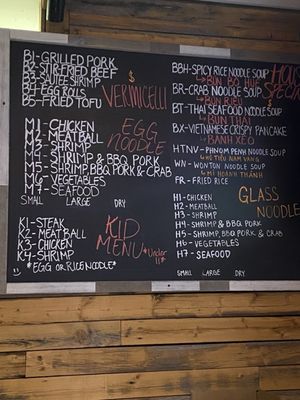 B1-GRILLED PORK
B2-STIR-FRIED BEEF
B3-SHRIMP
B4-EGG ROLLS
B5-FRIED TOFU
$
VERMICELLI
M1-CHICKEN
M2-MEATBALL
M3-SHRIMP
M4-SHRIMP & BBQ PORK
M5-SHRIMP, BBQ PORK & CRAB
M6-VEGETABLES
M7-SEAFOOD
EGG
NOODLE
SMALL LARGE DRY
K1-STEAK
K2-MEATBALL
K3-CHICKEN
K4-SHRIMP
*EGG OR RICE NOODLE*
KID
MENU
*Under
BBH-SPICY RICE NOODLE SOUP
BUN BO HUE
BR-CRAB NOODLE SOUP
BUN RIEU
BT-THAI SEAFOOD NOODLE SOUP
BUN THAI
BX-VIETNAMESE CRISPY PANCAKE
BANH XEO
HTNV-PHNOM PENH NOODLE SOUP
HỦ TIẾU NAM VANG
WN-WONTON NOODLE SOUP
MÌ HOÀNH THÁNH
FR-FRIED RICE
$
H1-CHICKEN
H2-MEATBALL
H3-SHRIMP
H4-SHRIMP & BBQ PORK
H5-SHRIMP, BBQ PORK & CRAB
H6-VEGETABLES
H7-SEAFOOD
GLASS
NOODLE
SMALL LARGE DRY